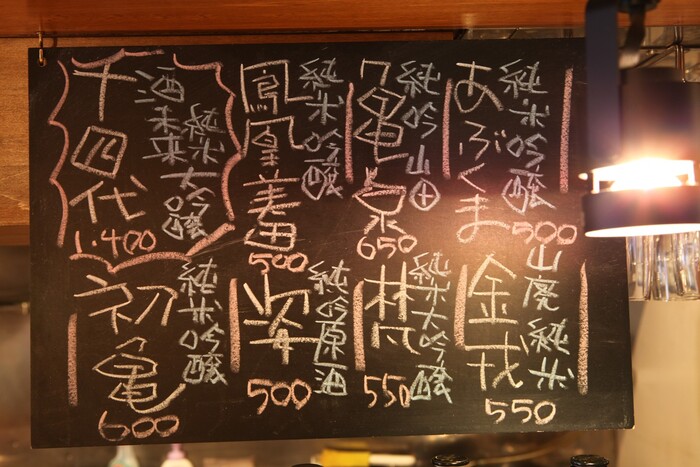 あぶくま
純米吟醸
500
亀泉
純吟山田
650
鳳凰美田
純米吟醸
500
十四代
酒未来
純米大吟醸
1.400
金戎
山廃純米
550
梵
純米大吟醸
550
姿
純吟原酒
500
初亀
純米吟醸
600